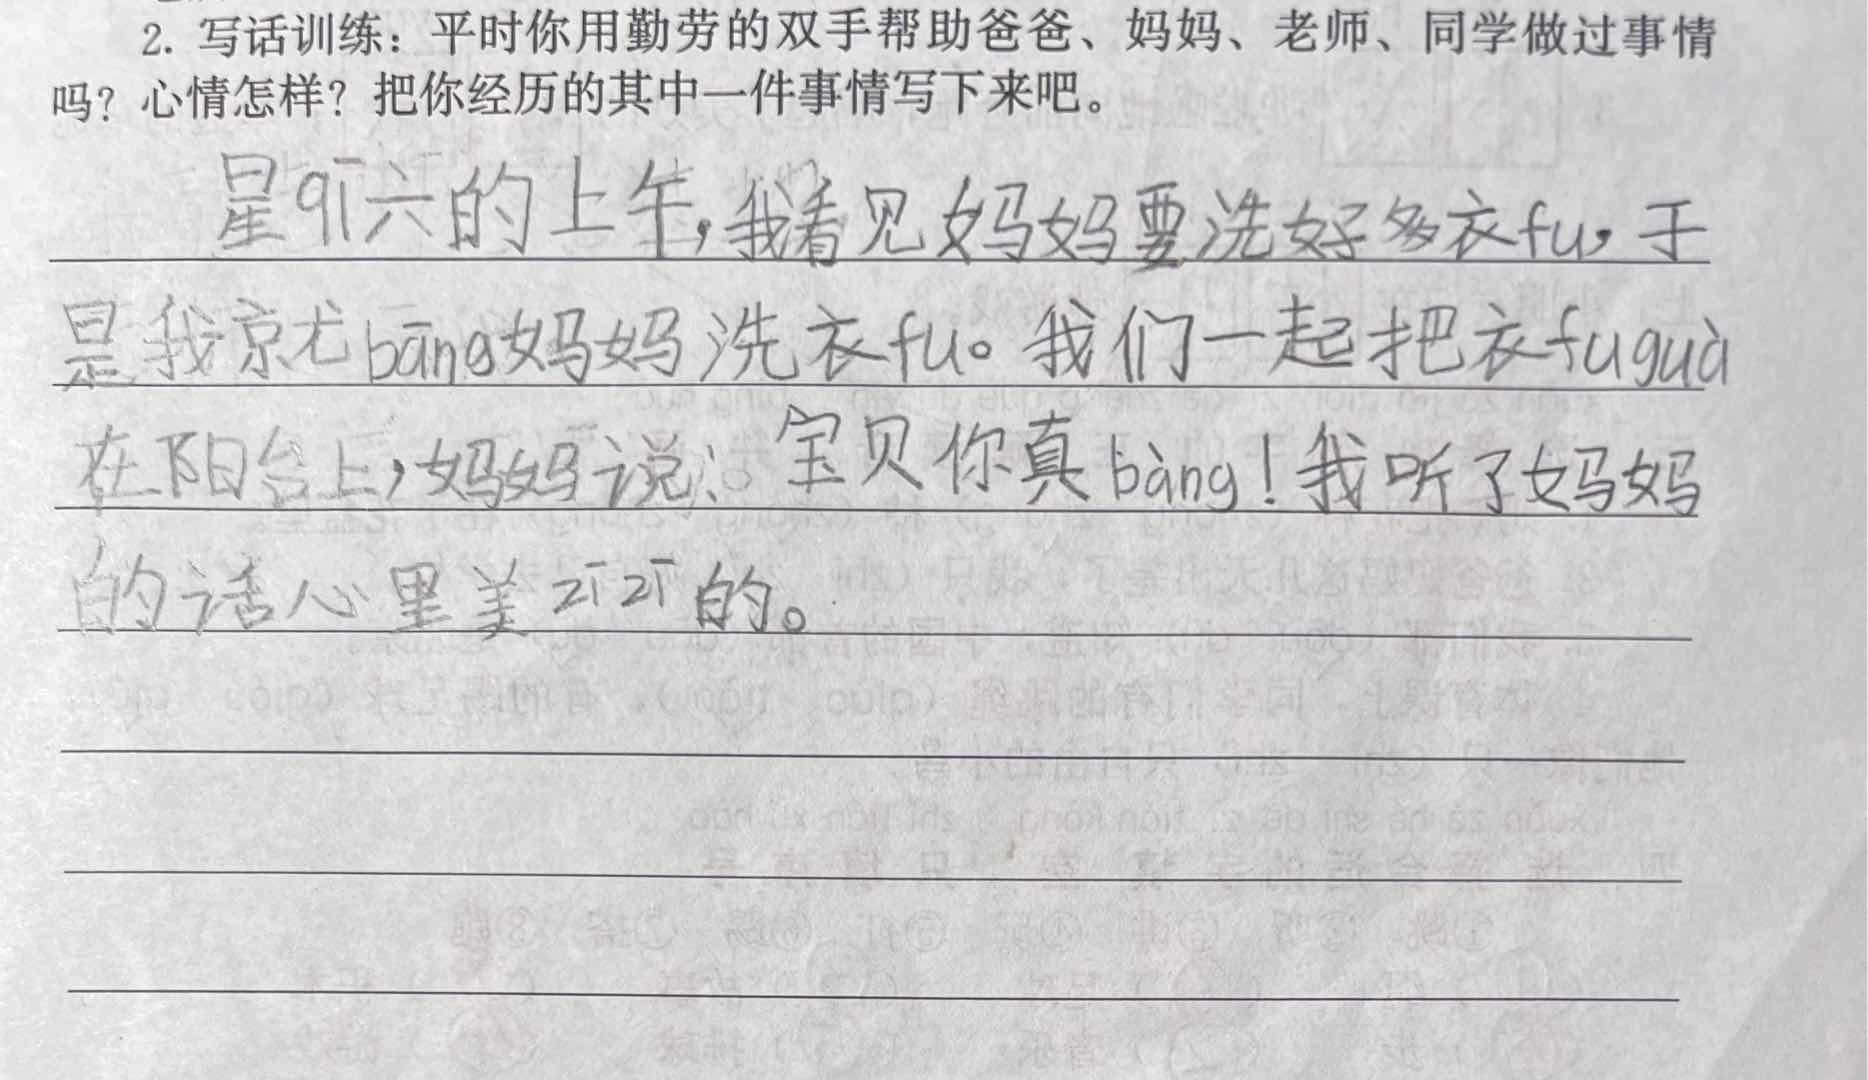 2. 写话训练：平时你用勤劳的双手帮助爸爸、妈妈、老师、同学做过事情
吗？心情怎样？把你经历的其中一件事情写下来吧。
星qī六的上午，我看见妈妈要洗好多衣fu，于
是我京尤bāng妈妈洗衣fu。我们一起把衣fuguà
在阳台上，妈妈说：宝贝你真bàng！我听了妈妈
的话心里美zīzī的。